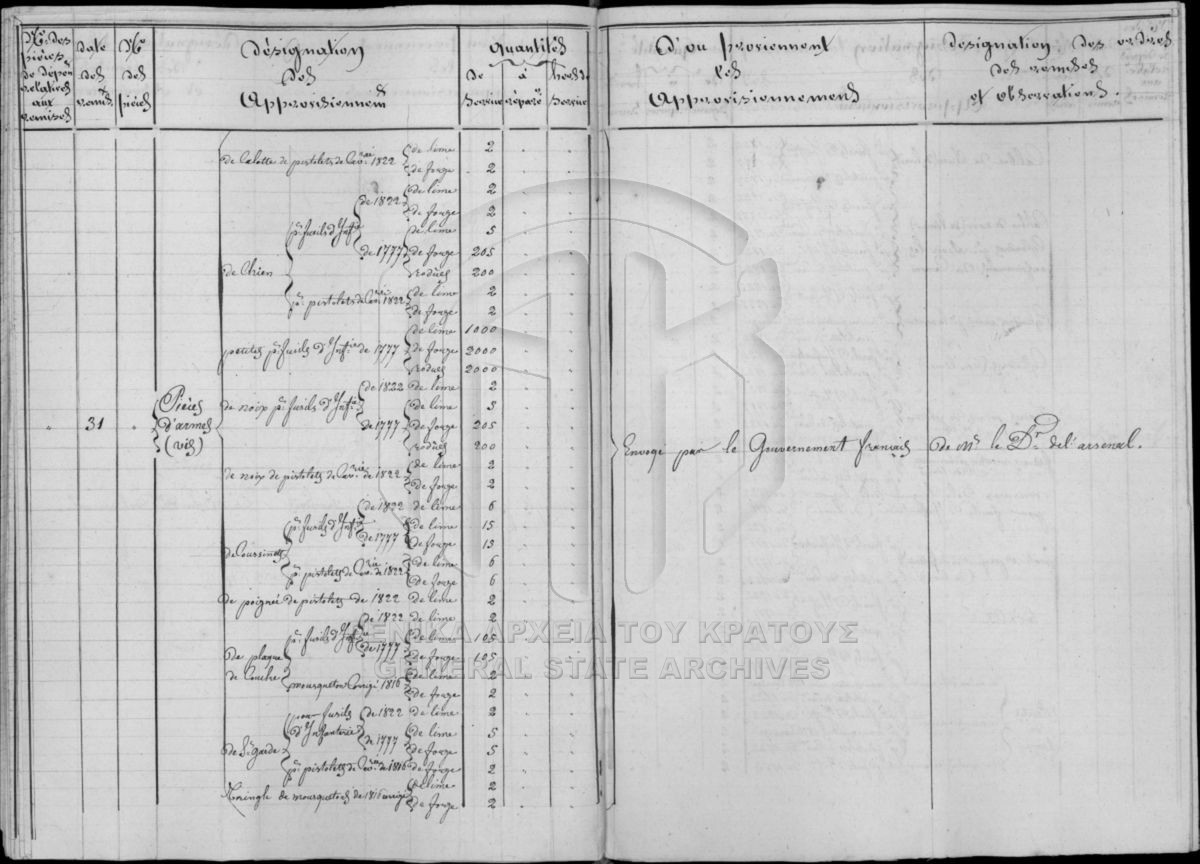 Nos. des pièces de dépense relatives aux remises
date des remis.
No. des pièces
désignation des Approvisionnemts
Quantités
de service
à réparer
hors de service
D'ou proviennent les Approvisionnements
désignation des ordres des remises et observations.
" 31 " Pièces d'armes (vis)
de Calotte de pistolets de Cavrie 1822 de lime 2
de forge 2
de Chien pr. fusils d'Infie de 1822 de lime 2
de forge 2
de 1777 de lime 5
de forge 205
rodées 200
pr. pistolets de Cavrie 1822 de lime 2
de forge 2
petites pr. fusils d'Infie de 1777 de lime 1000
de forge 2000
rodées 2000
de noix pr. fusils d'Infie de 1822 de lime 2
de 1777 de lime 5
de forge 205
rodées 200
de noix de pistolets de Cavrie de 1822 de lime 2
de forge 2
de Coussinets pr. fusils d'Infie de 1822 de lime 6
de 1777 de lime 15
de forge 15
pr. pistolets de Cavrie de 1822 de lime 6
de forge 6
de poignée de pistolets de 1822 de lime 2
de plaque de Couche pr. fusils d'Infie de 1822 de lime 2
de 1777 de lime 105
de forge 105
mousqueton Corrigé 1816 de lime 2
de forge 2
de S.garde pour fusils d'Infanterie de 1822 de lime 2
de 1777 de lime 5
de forge 5
pr. pistolets de Cavrie de 1816 de forge 2
tringle de mousquetons de 1816 corrigé de lime 2
de forge 2
Envogé par le Gouvernement français
de Mr. le Dr. de l'arsenal.
ΓΕΝΙΚΑ ΑΡΧΕΙΑ ΤΟΥ ΚΡΑΤΟΥΣ
GENERAL STATE ARCHIVES